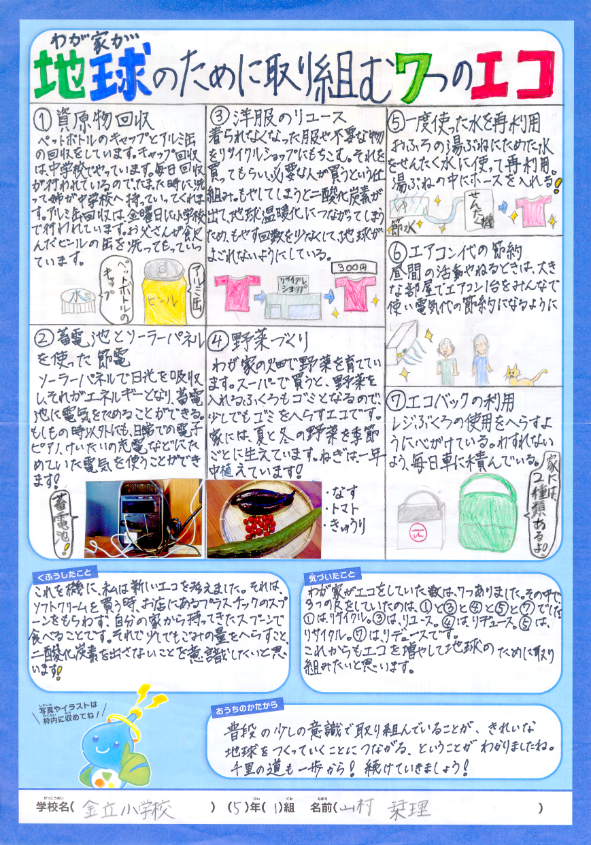 わが家が
地球のために取り組む7つのエコ
① 資原物回収
ペットボトルのキャップとアルミ缶
の回収をしています。キャップ回収
は中学校でやっています。毎日回収
が行われているのでたまった時に洗
って姉が中学校へ持っていってくれま
す。アルミ缶回収は、金曜日に小学校
で行われています。お父さんが飲
んだビールの缶を洗ってもっていっ
ています。
水
ペットボトルの
キャップ
ビール
アルミ缶
② 蓄電池とソーラーパネル
を使った節電
ソーラーパネルで日光を吸収
し、それがエネルギーとなり、蓄電
池に電気をためることができる。
もしもの時以外にも、日常での電子
ピアノ、けいたいの充電などにた
めていた電気を使うことができ
ます!
蓄電池!
③ 洋服のリユース
着られなくなった服や不要な物
をリサイクルショップにもちこす。それを
買ってもらい、必要な人が買うという仕
組み。もやしてしまうと二酸化炭素が
出て、地球温暖化につながってしまう
ため、もやす回数を少なくして、地球が
よごれないようにしている。
リサイクル
ショップ
300円
④ 野菜づくり
わが家の畑で野菜を育ててい
ます。スーパーで買うと、野菜を
入れるふくろもゴミとなるので、
少しでもゴミをへらすエコです。
家には、夏と冬の野菜を季節
ごとに生えています。ねぎは一年
中植えています!
・なす
・トマト
・きゅうり
⑤一度使った水を再利用
おふろの湯ぶねにためた水
をせんたく水に使って再利用。
湯ぶねの中にホースを入れる!
節水
せんたく機
⑥ エアコン代の節約
昼間の活動やねるときは、大き
な部屋でエアコン1台をみんなで
使い電気代の節約になるように
⑦エコバックの利用
レジぶくろの使用をへらすよ
うに心がけている。わすれない
よう、毎日車に積んでいる。
家には、
2種類あるよ!
くふうしたこと
これを機に、私は新しいエコを考えました。それは、
ソフトクリームを買う時、お店にあるプラスチックのスプ
ーンをもらわず、自分の家から持ってきたスプーンで
食べることです。それで少しでもごみの量をへらすこと、
二酸化炭素を出さないことを意識したいと思
います!
気づいたこと
わが家がエコをしていた数は、7つありました。その中で
3つのRをしていたのは、①と③と④と⑤と⑦でした。
①はリサイクル。③は、リユース。④は、リデュース。⑤は、
リサイクル。⑦は、リデュースです。
これからもエコを増やして地球のために取り
組みたいと思います。
写真やイラストは
枠内に収めてね!
おうちのかたから
普段の少しの意識で取り組んでいることが、きれいな
地球をつくっていくことにつながる、ということがわかりましたね。
千里の道も一歩から! 続けていきましょう!
学校名( 金立小学校 ) (5)年(1)組 名前( 山村 栞理 )